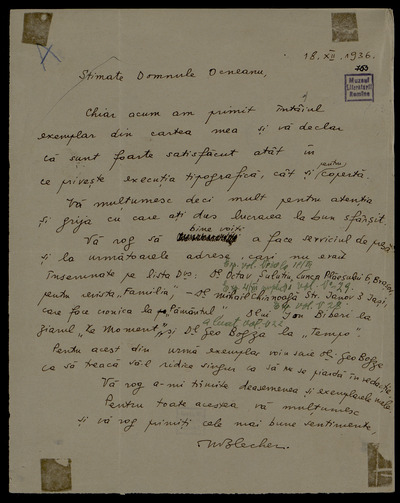 18.XII.1936.
753
Muzeul
Literaturii
Române
Stimate Domnule Ocneanu,
Chiar acum am primit întâiul
exemplar din cartea mea și vă declar
că sunt foarte satisfăcut atât în
ce privește execuția tipografică, cât și pentru copertă.
Vă mulțumesc deci mult pentru atenția
și grija cu care ați dus lucrarea la bun sfârșit.
Vă rog să bine voiți a face serviciul de presă
și la următoarele adrese, cari nu erau
însemnate pe lista Dvs: Dl Octav Șuluțiu, Lunca Plăeșului 6, Brașov
pentru revista „Familia", – Dl. Mihail Chirnoagă Str. Ianov 3 Iași,
care face cronica la „Pământul" Dlui Ion Biberi la
ziarul „Le Moment", și Dl. Geo Bogza la „Tempo".
Pentru acest din urmă exemplar voiu scrie Dl. Geo Bogza
ca să treacă să-l ridice singur ca să nu se piardă în redacție
Vă rog a-mi trimite deasemenea și exemplarele mele.
Pentru toate acestea vă mulțumesc
și vă rog primiți cele mai bune sentimente,
M Blecher.